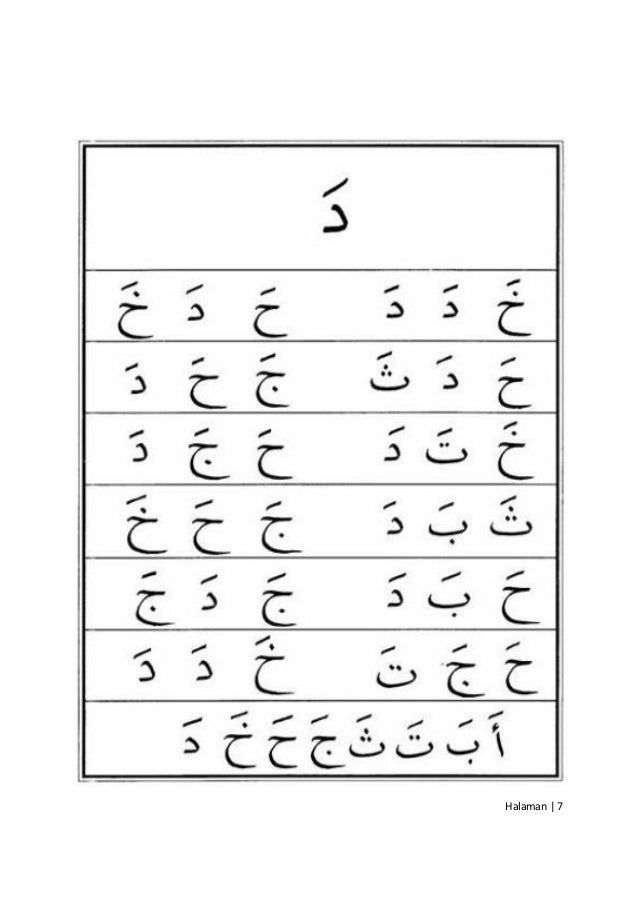 دَ
خَ دَ دَ حَ دَ خَ
حَ دَ ثَ جَ حَ دَ
خَ تَ دَ حَ جَ دَ
ثَ بَ دَ جَ حَ خَ
حَ بَ دَ جَ دَ جَ
حَ جَ تَ خَ دَ دَ
أَ بَ تَ ثَ جَ حَ خَ دَ
Halaman | 7